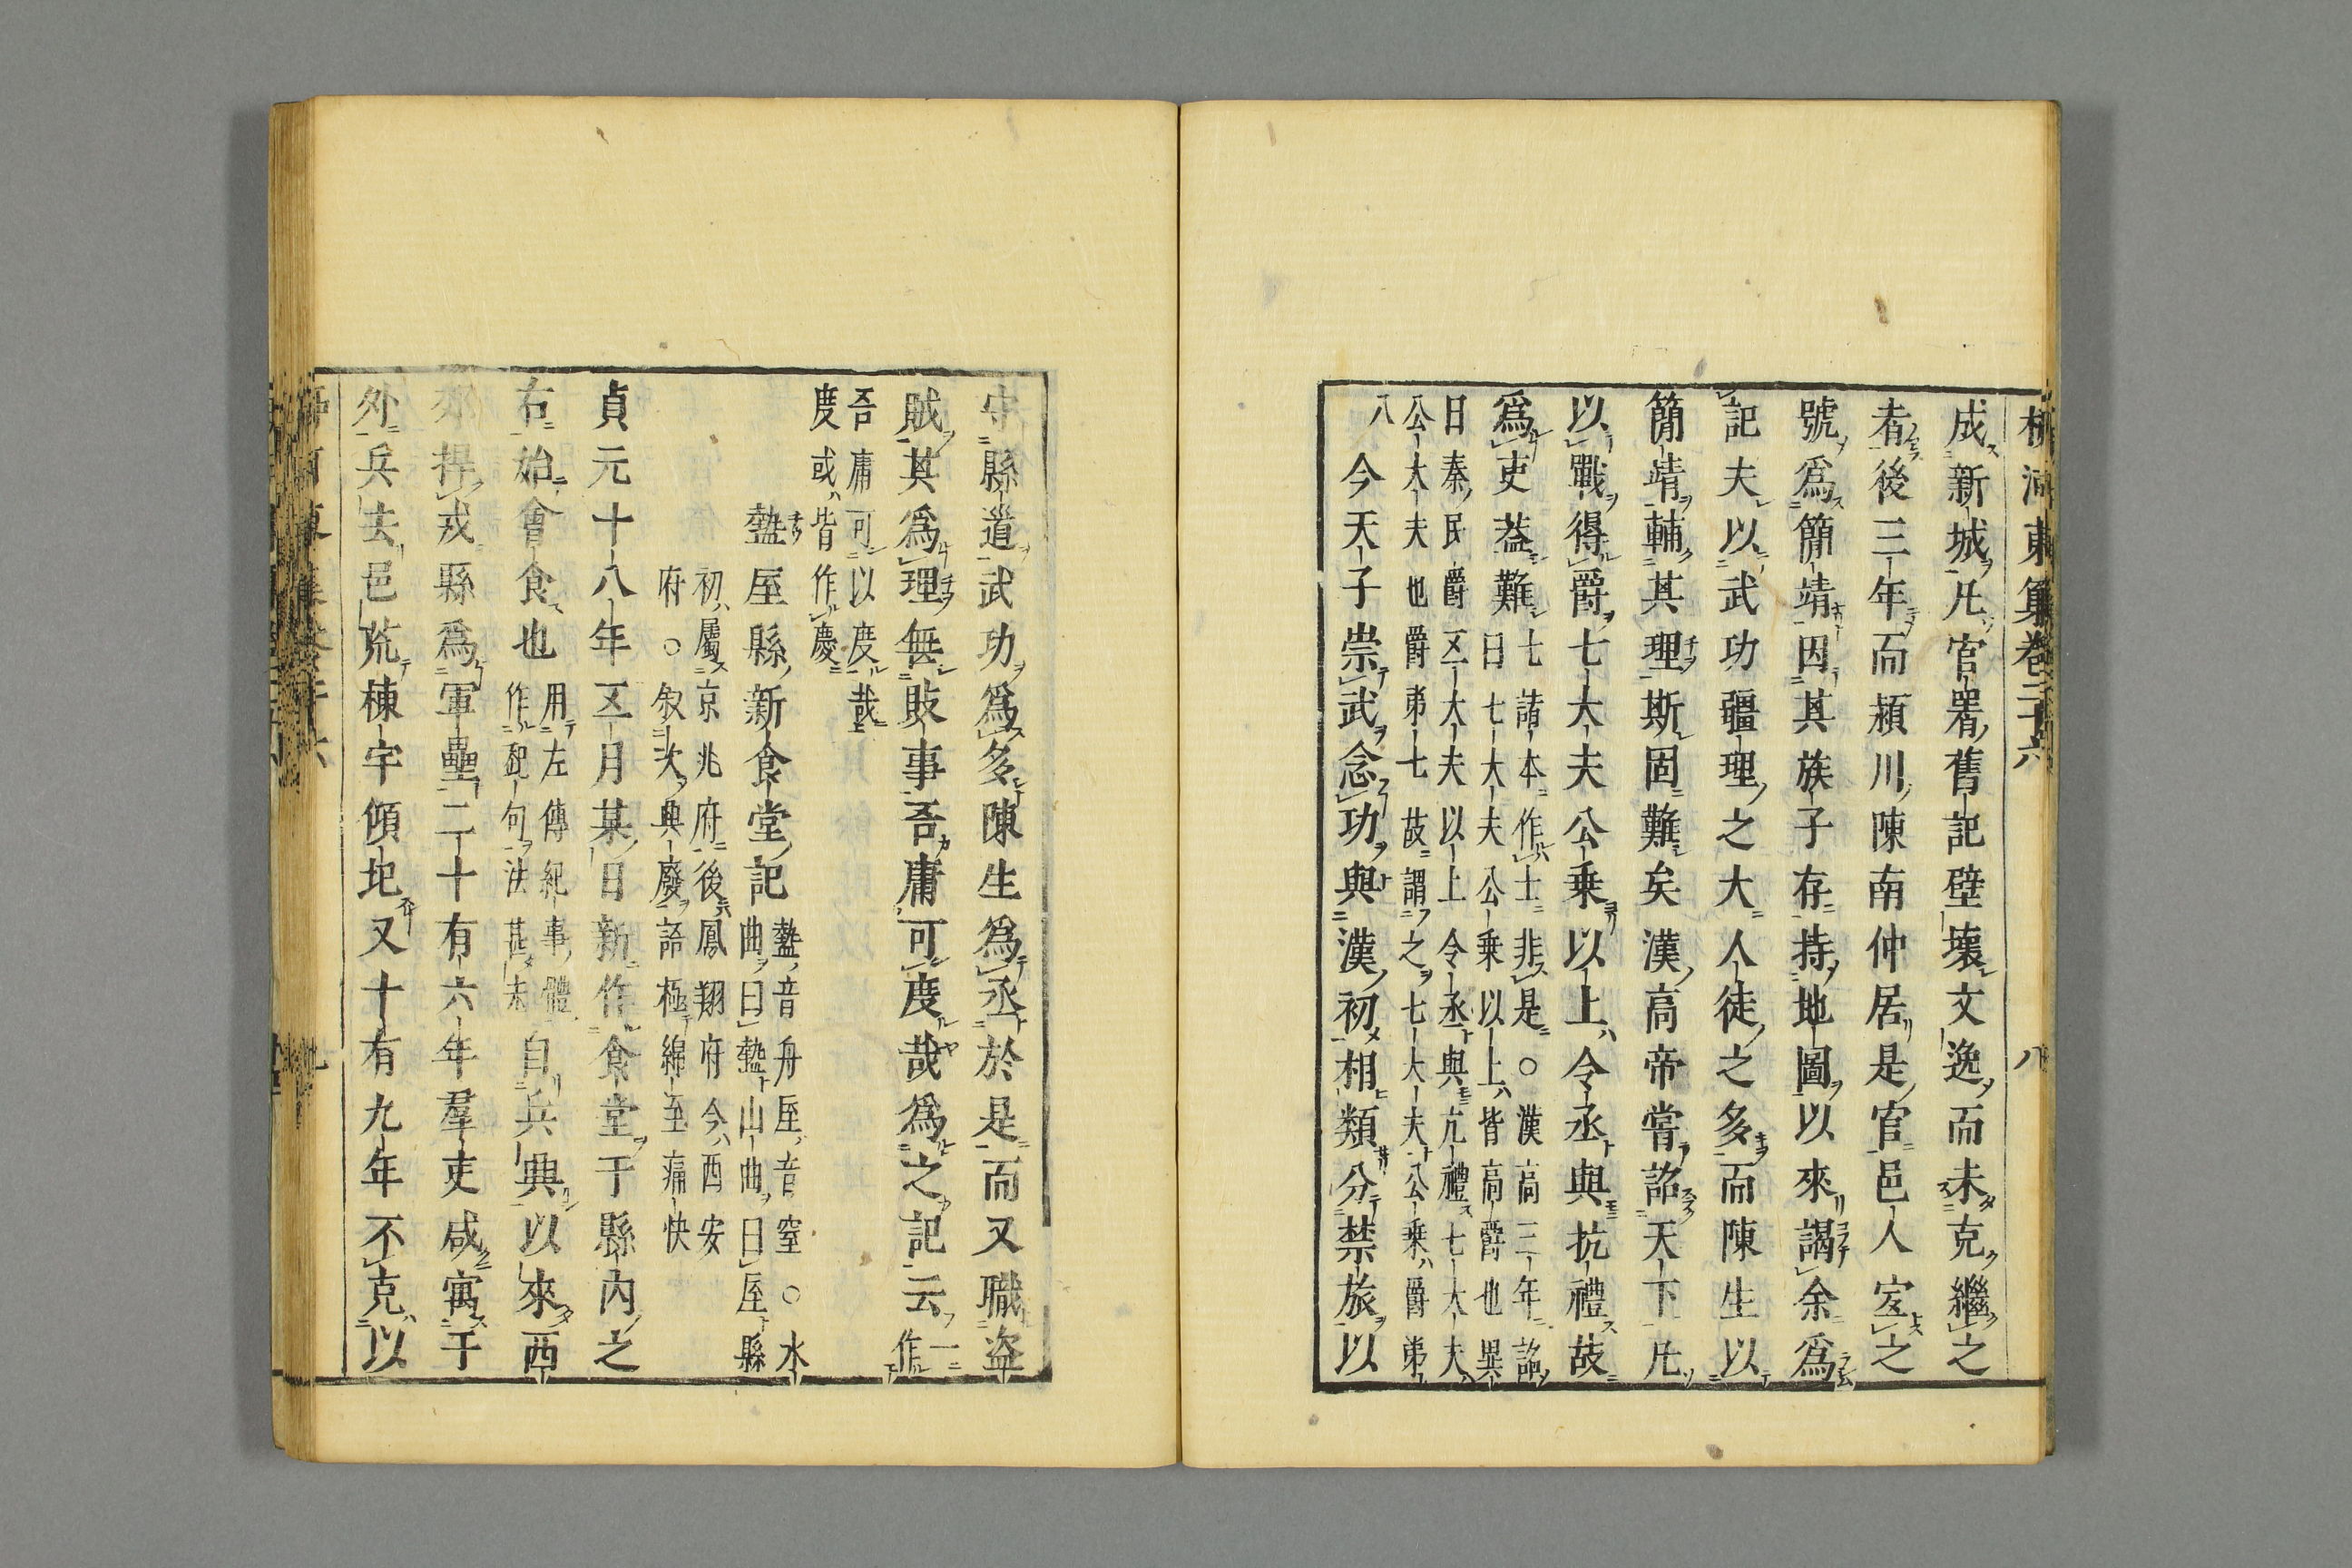 柳河東集卷二十六 八
成新城凡官署舊記壁壞文逸而未克繼之
者後三年而潁川陳南仲居是官邑人宜之
號爲簡靖因其族子存持地圖以來謁余爲
記夫以武功疆理之大人徒之多而陳生以
簡靖輔其理斯固難矣漢高帝嘗詔天下凡
以戰得爵七大夫公乘以上令丞與抗禮故
爲吏益難七諸本作士非是○漢高三年詔
曰七大夫公乘以上皆高爵也異
日秦民爵五大夫以上令丞與亢禮七大夫
公大夫也爵弟七故謂之七大夫公乘爵弟
八
今天子崇武念功與漢初相類分禁旅以
守縣道武功爲多陳生爲丞於是而又職盜
賊其爲理無敗事吾庸可度哉爲之記云一
作
吾庸可以度哉
度或皆作慶
盩厔縣新食堂記盩音舟厔音窒○水
曲曰盩山曲曰厔縣
初屬京兆府後鳳翔府今西安
府○叙次典廢語極綿至痛快
貞元十八年五月某日新作食堂于縣內之
右始會食也用左傳紀事體
作起句法甚
自兵興以來西
郊捍戎縣爲軍壘二十有六年羣吏咸寓于
外兵去邑荒棟宇傾圮又十有九年不克以